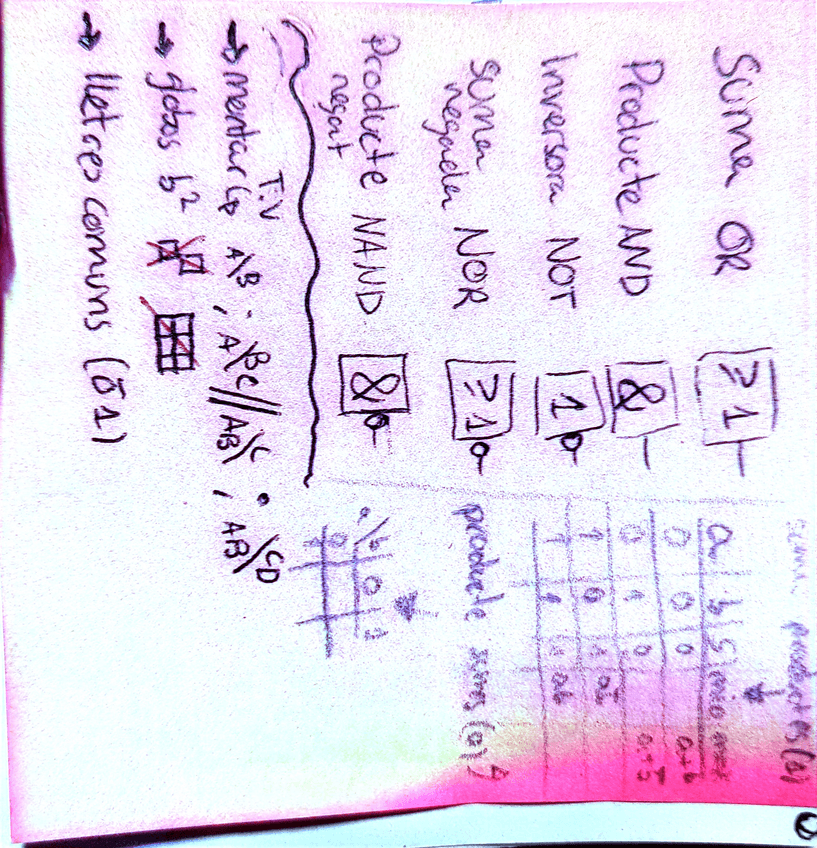 Suma OR ≥1
Producte AND &
Inversora NOT 1
Suma negada NOR ≥1
Producte negat NAND &
→ muntar T.V
A\B ; A\BC // AB\C ; AB\CD
→ globos b²
→ lletres comuns (ō 1)
suma productes (1)
a b S mio max
0 0 0 a+b
0 1 0
1 0 1 ab̄
1 1 1 ab
producte sumes (0)
a\b 0 1
0
1